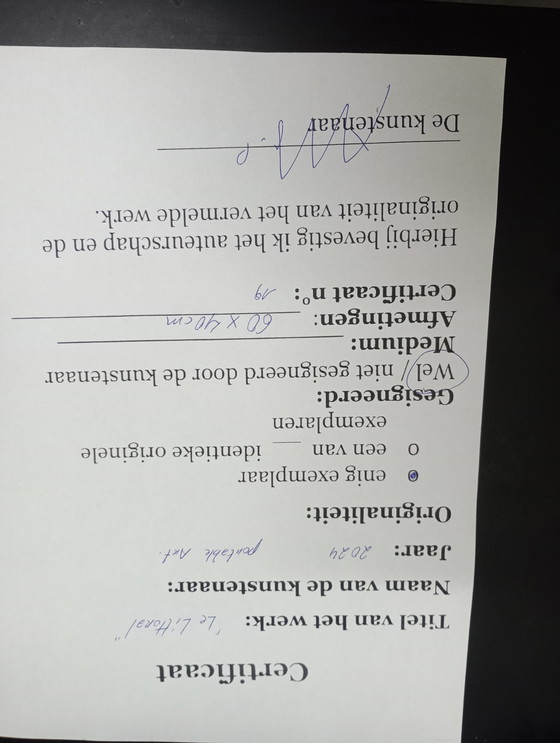 Certificaat
Titel van het werk: "Le Littoral"
Naam van de kunstenaar:
Jaar: 2024 portable Art.
Originaliteit:
enig exemplaar
o een van ___ identieke originele
exemplaren
Gesigneerd:
Wel / niet gesigneerd door de kunstenaar
Medium:
Afmetingen: 60 x 40 cm
Certificaat n°: 19
Hierbij bevestig ik het auteurschap en de
originaliteit van het vermelde werk.
De kunstenaar